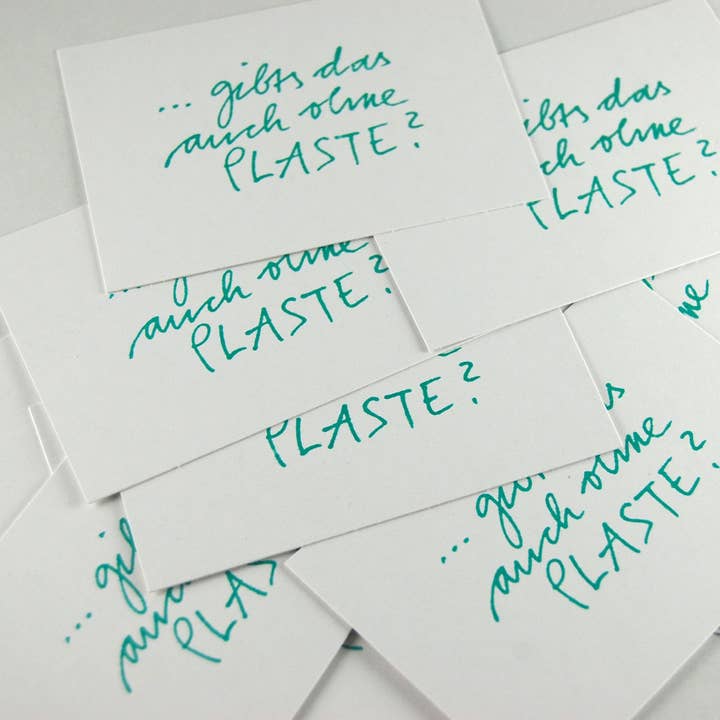 ... gibts das
auch ohne
PLASTE?
ibts das
ch ohne
PLASTE?
auch ohne
PLASTE?
PLASTE?
ne
... gi
s
auch ohne
PLASTE?
... gi
auch
PLAS